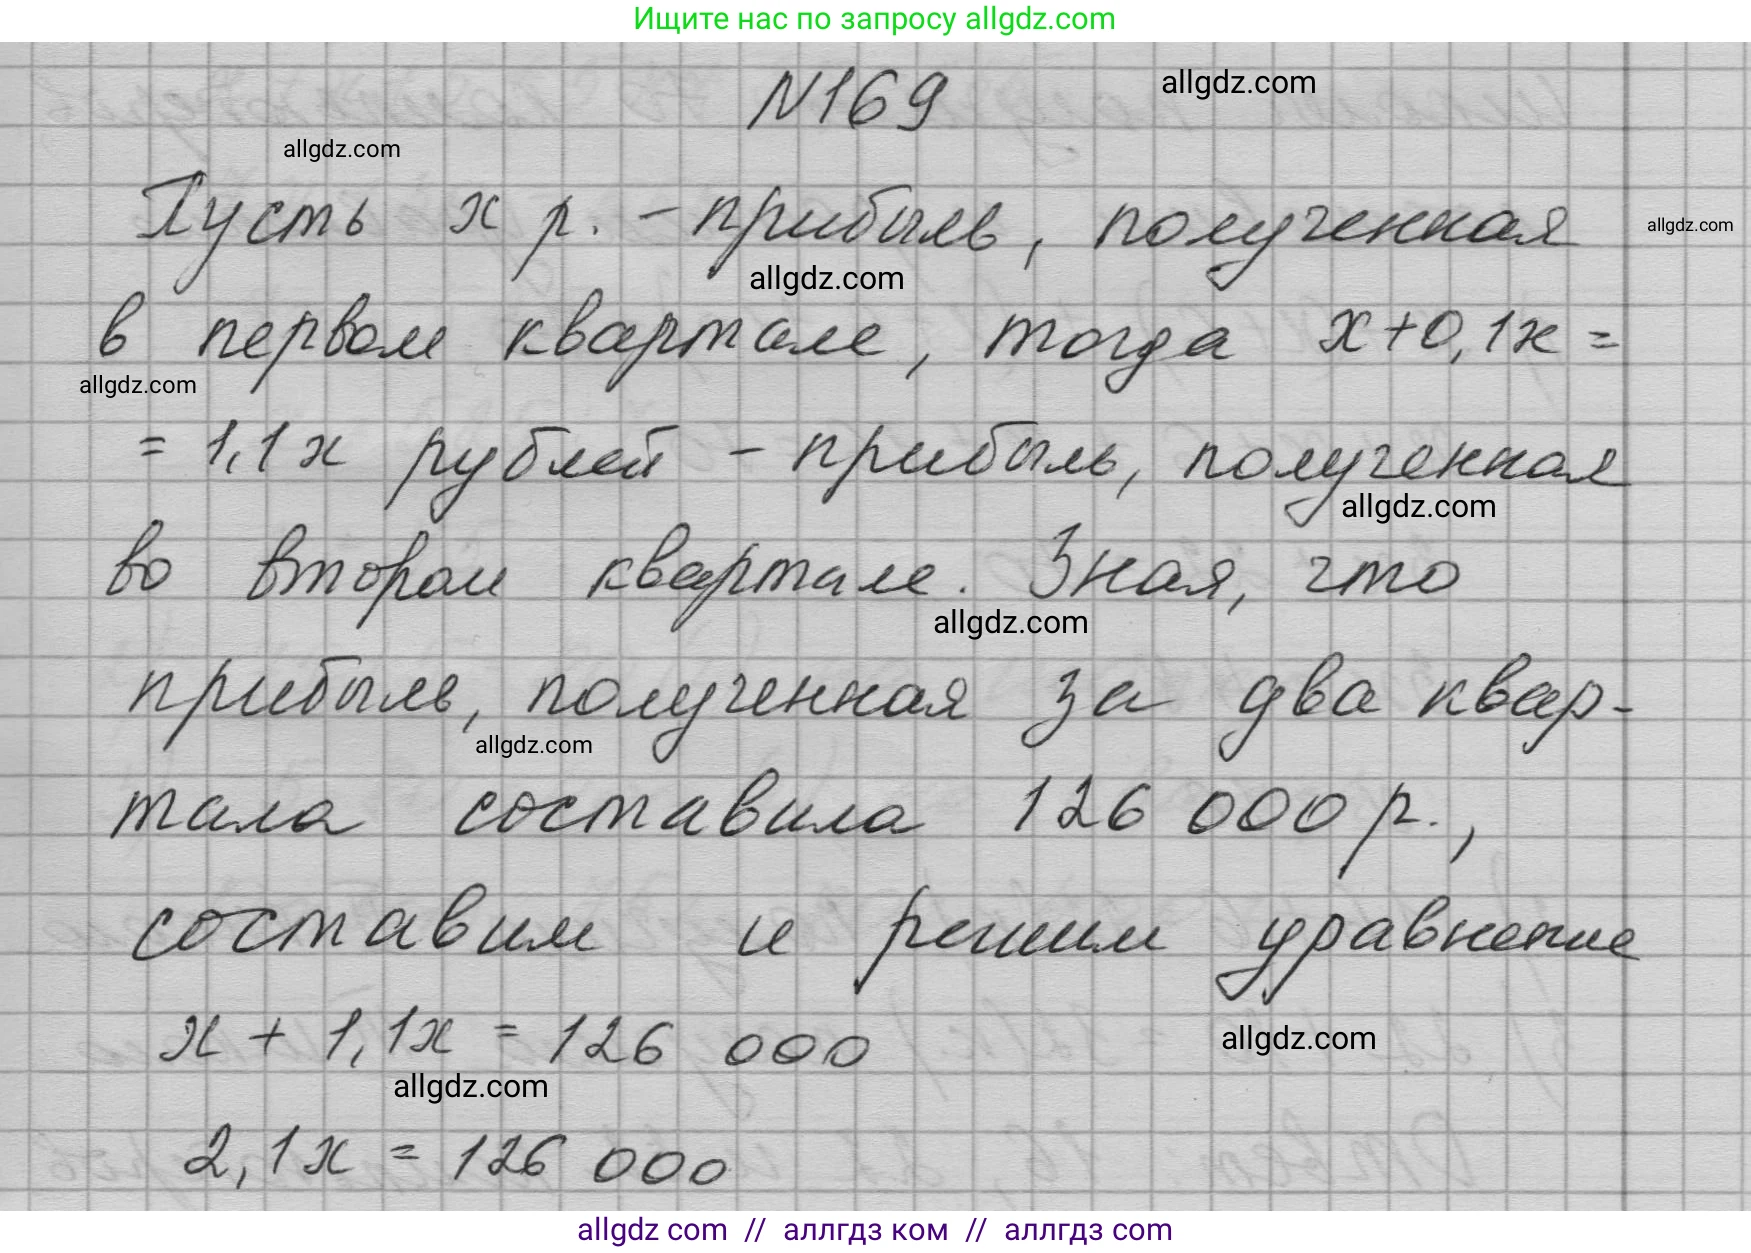 Ищите нас по запросу allgdz.com
№169
allgdz.com
allgdz.com
Пусть x р. – прибыль, полученная
allgdz.com
allgdz.com
в первом квартале, тогда x+0,1x =
allgdz.com
= 1,1x рублей – прибыль, полученная
allgdz.com
во втором квартале. Зная, что
allgdz.com
прибыль, полученная за два квар-
allgdz.com
тала составила 126 000 р.,
составим и решим уравнение
x + 1,1x = 126 000
allgdz.com
allgdz.com
2,1x = 126 000
allgdz com // аллгдз ком // аллгдз com